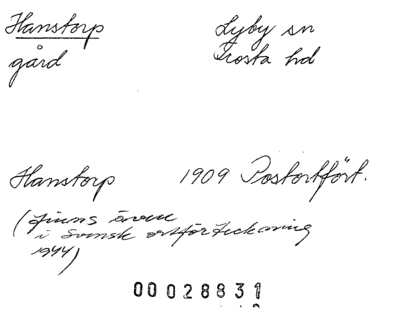 Hanstorp Lyby sn
gård Frosta hd
Hanstorp 1909 Postortfört.
(finns även
i Svensk ortförteckning
1944)
00028831